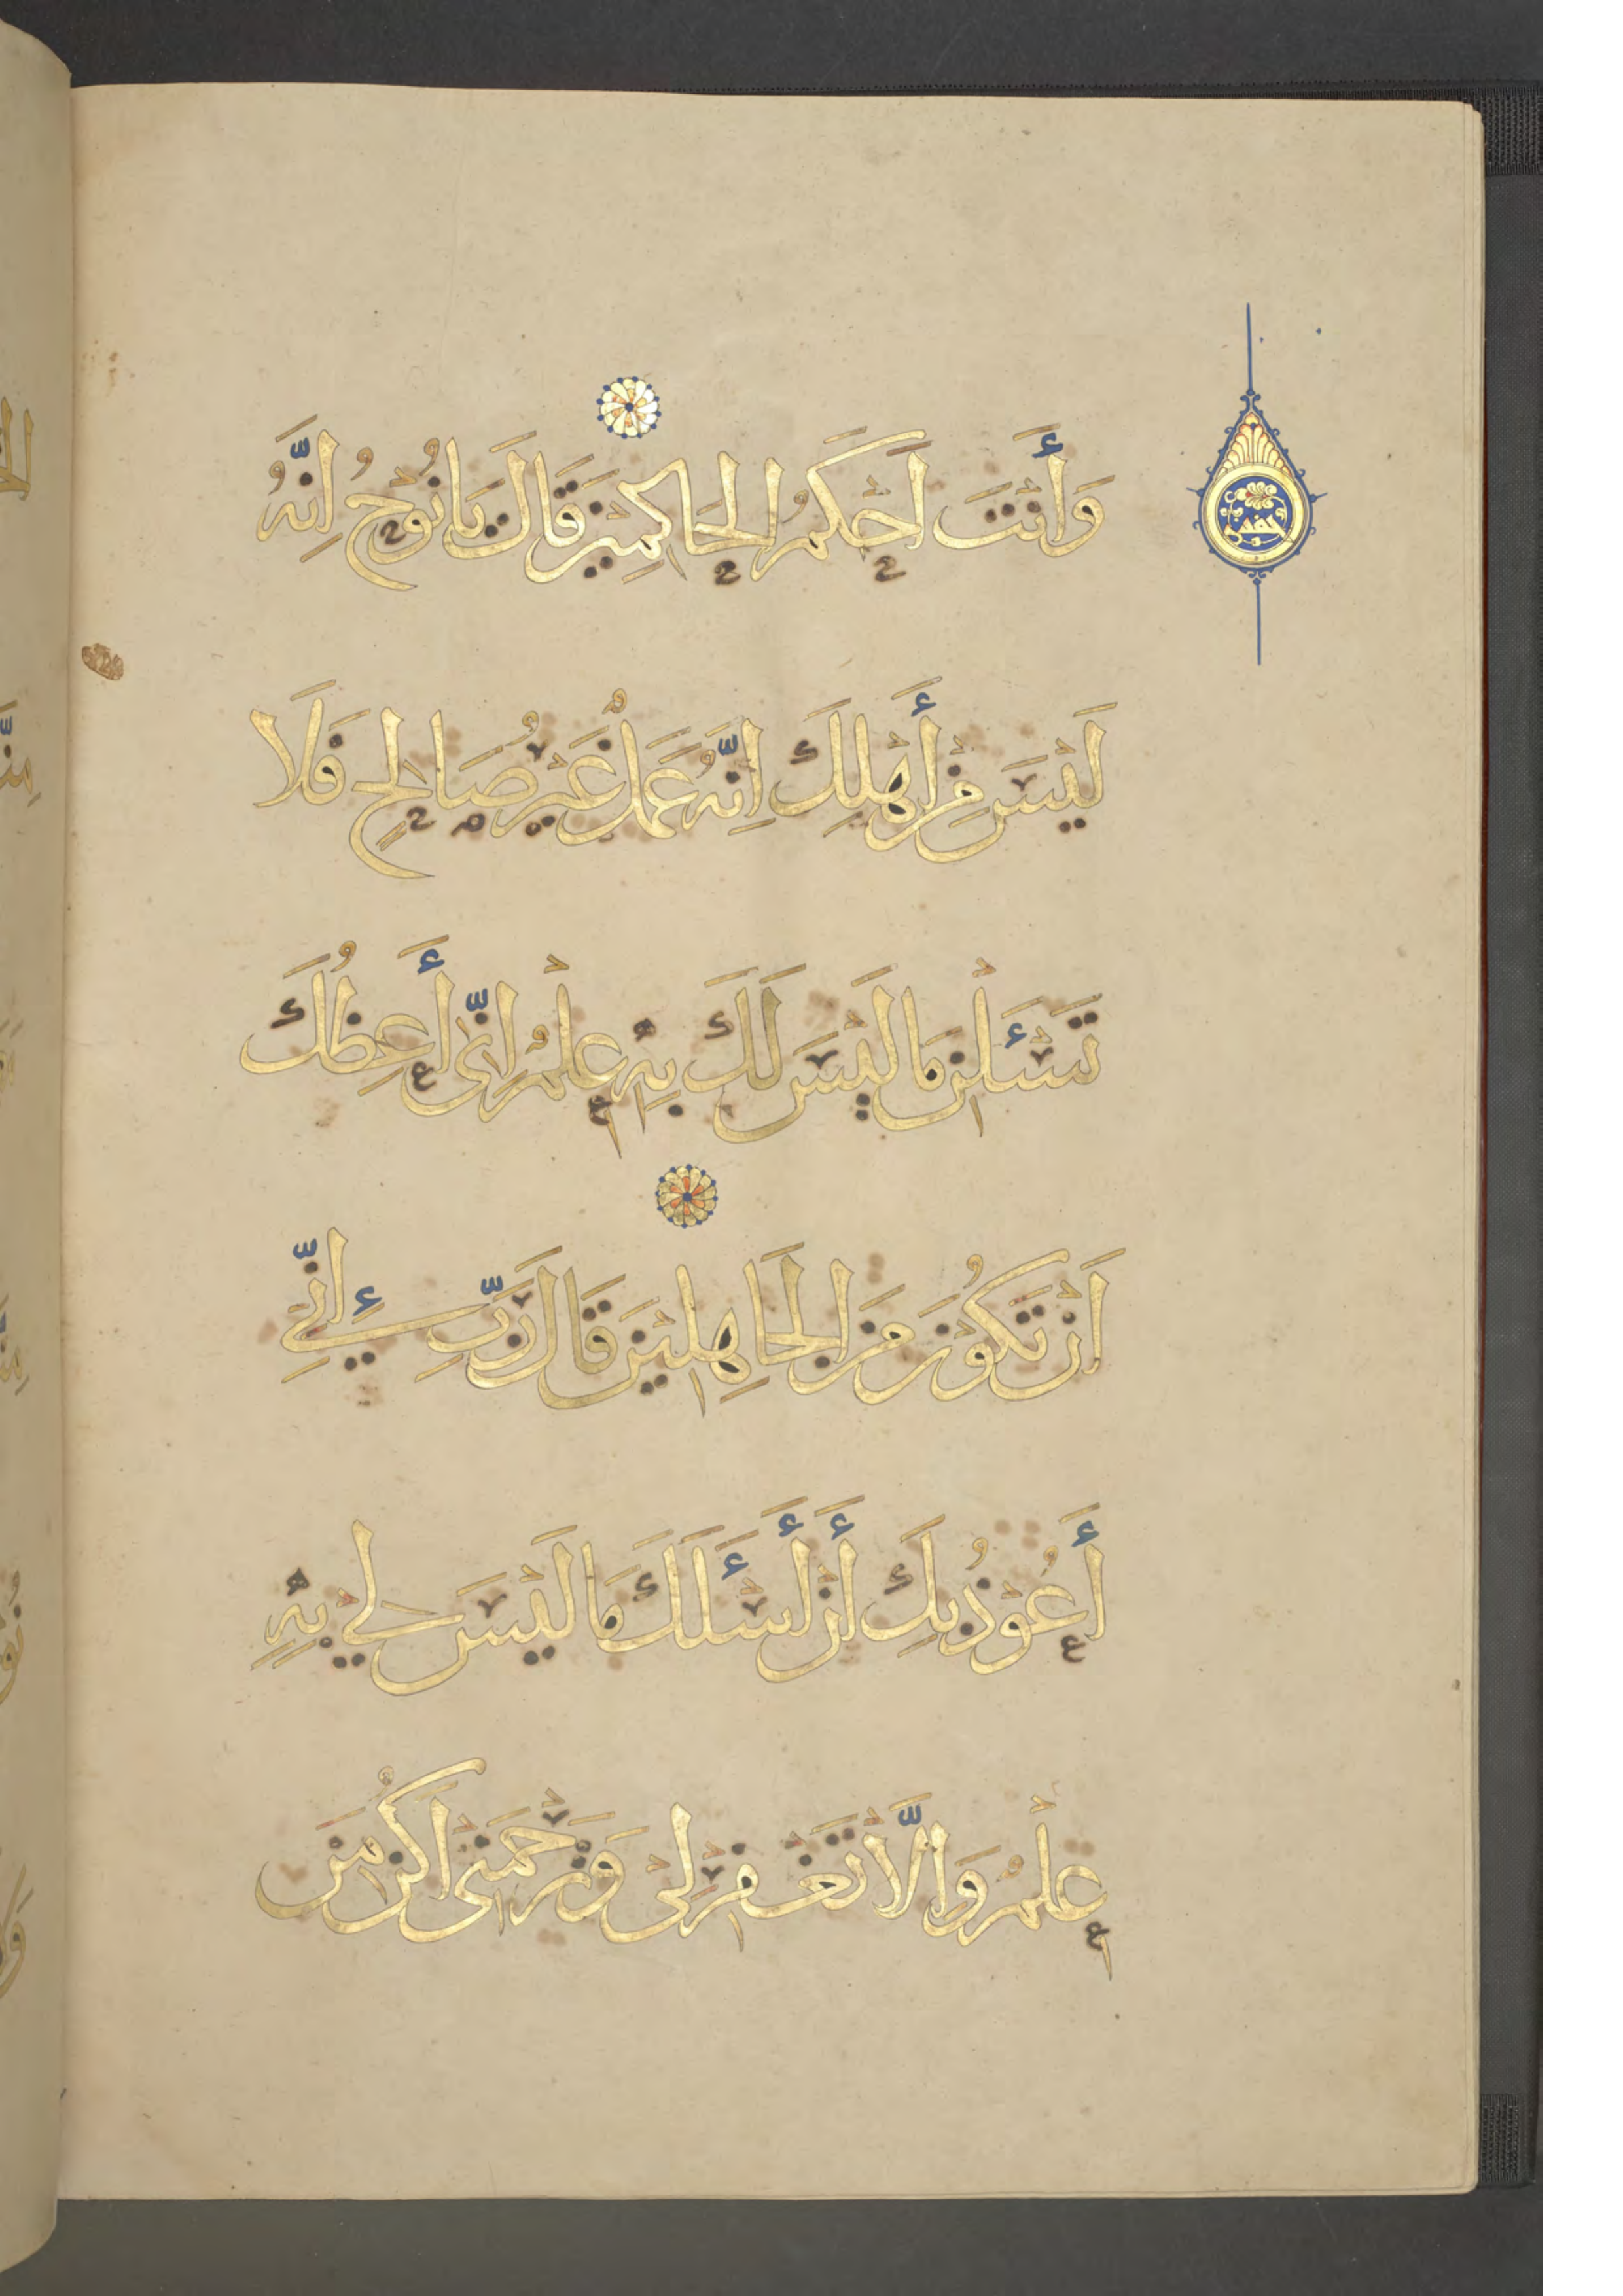 وَأَنْتَ اَحْكَمُ الْحَاكِمِيْنَ قَالَ يَا نُوْحُ اِنَّهُ
لَيْسَ مِنْ أَهْلِكَ اِنَّهُ عَمَلٌ غَيْرُ صَالِحٍ فَلَا
تَسْئَلْنِ مَا لَيْسَ لَكَ بِهِ عِلْمٌ اِنِّى أَعِظُكَ
اَنْ تَكُوْنَ مِنَ الْجَاهِلِيْنَ قَالَ رَبِّ إِنِّي
أَعُوْذُ بِكَ أَنْ أَسْئَلَكَ مَا لَيْسَ لِي بِهِ
عِلْمٌ وَاِلَّا تَغْفِرْ لِىْ وَتَرْحَمْنِى اَكُنْ مِنَ